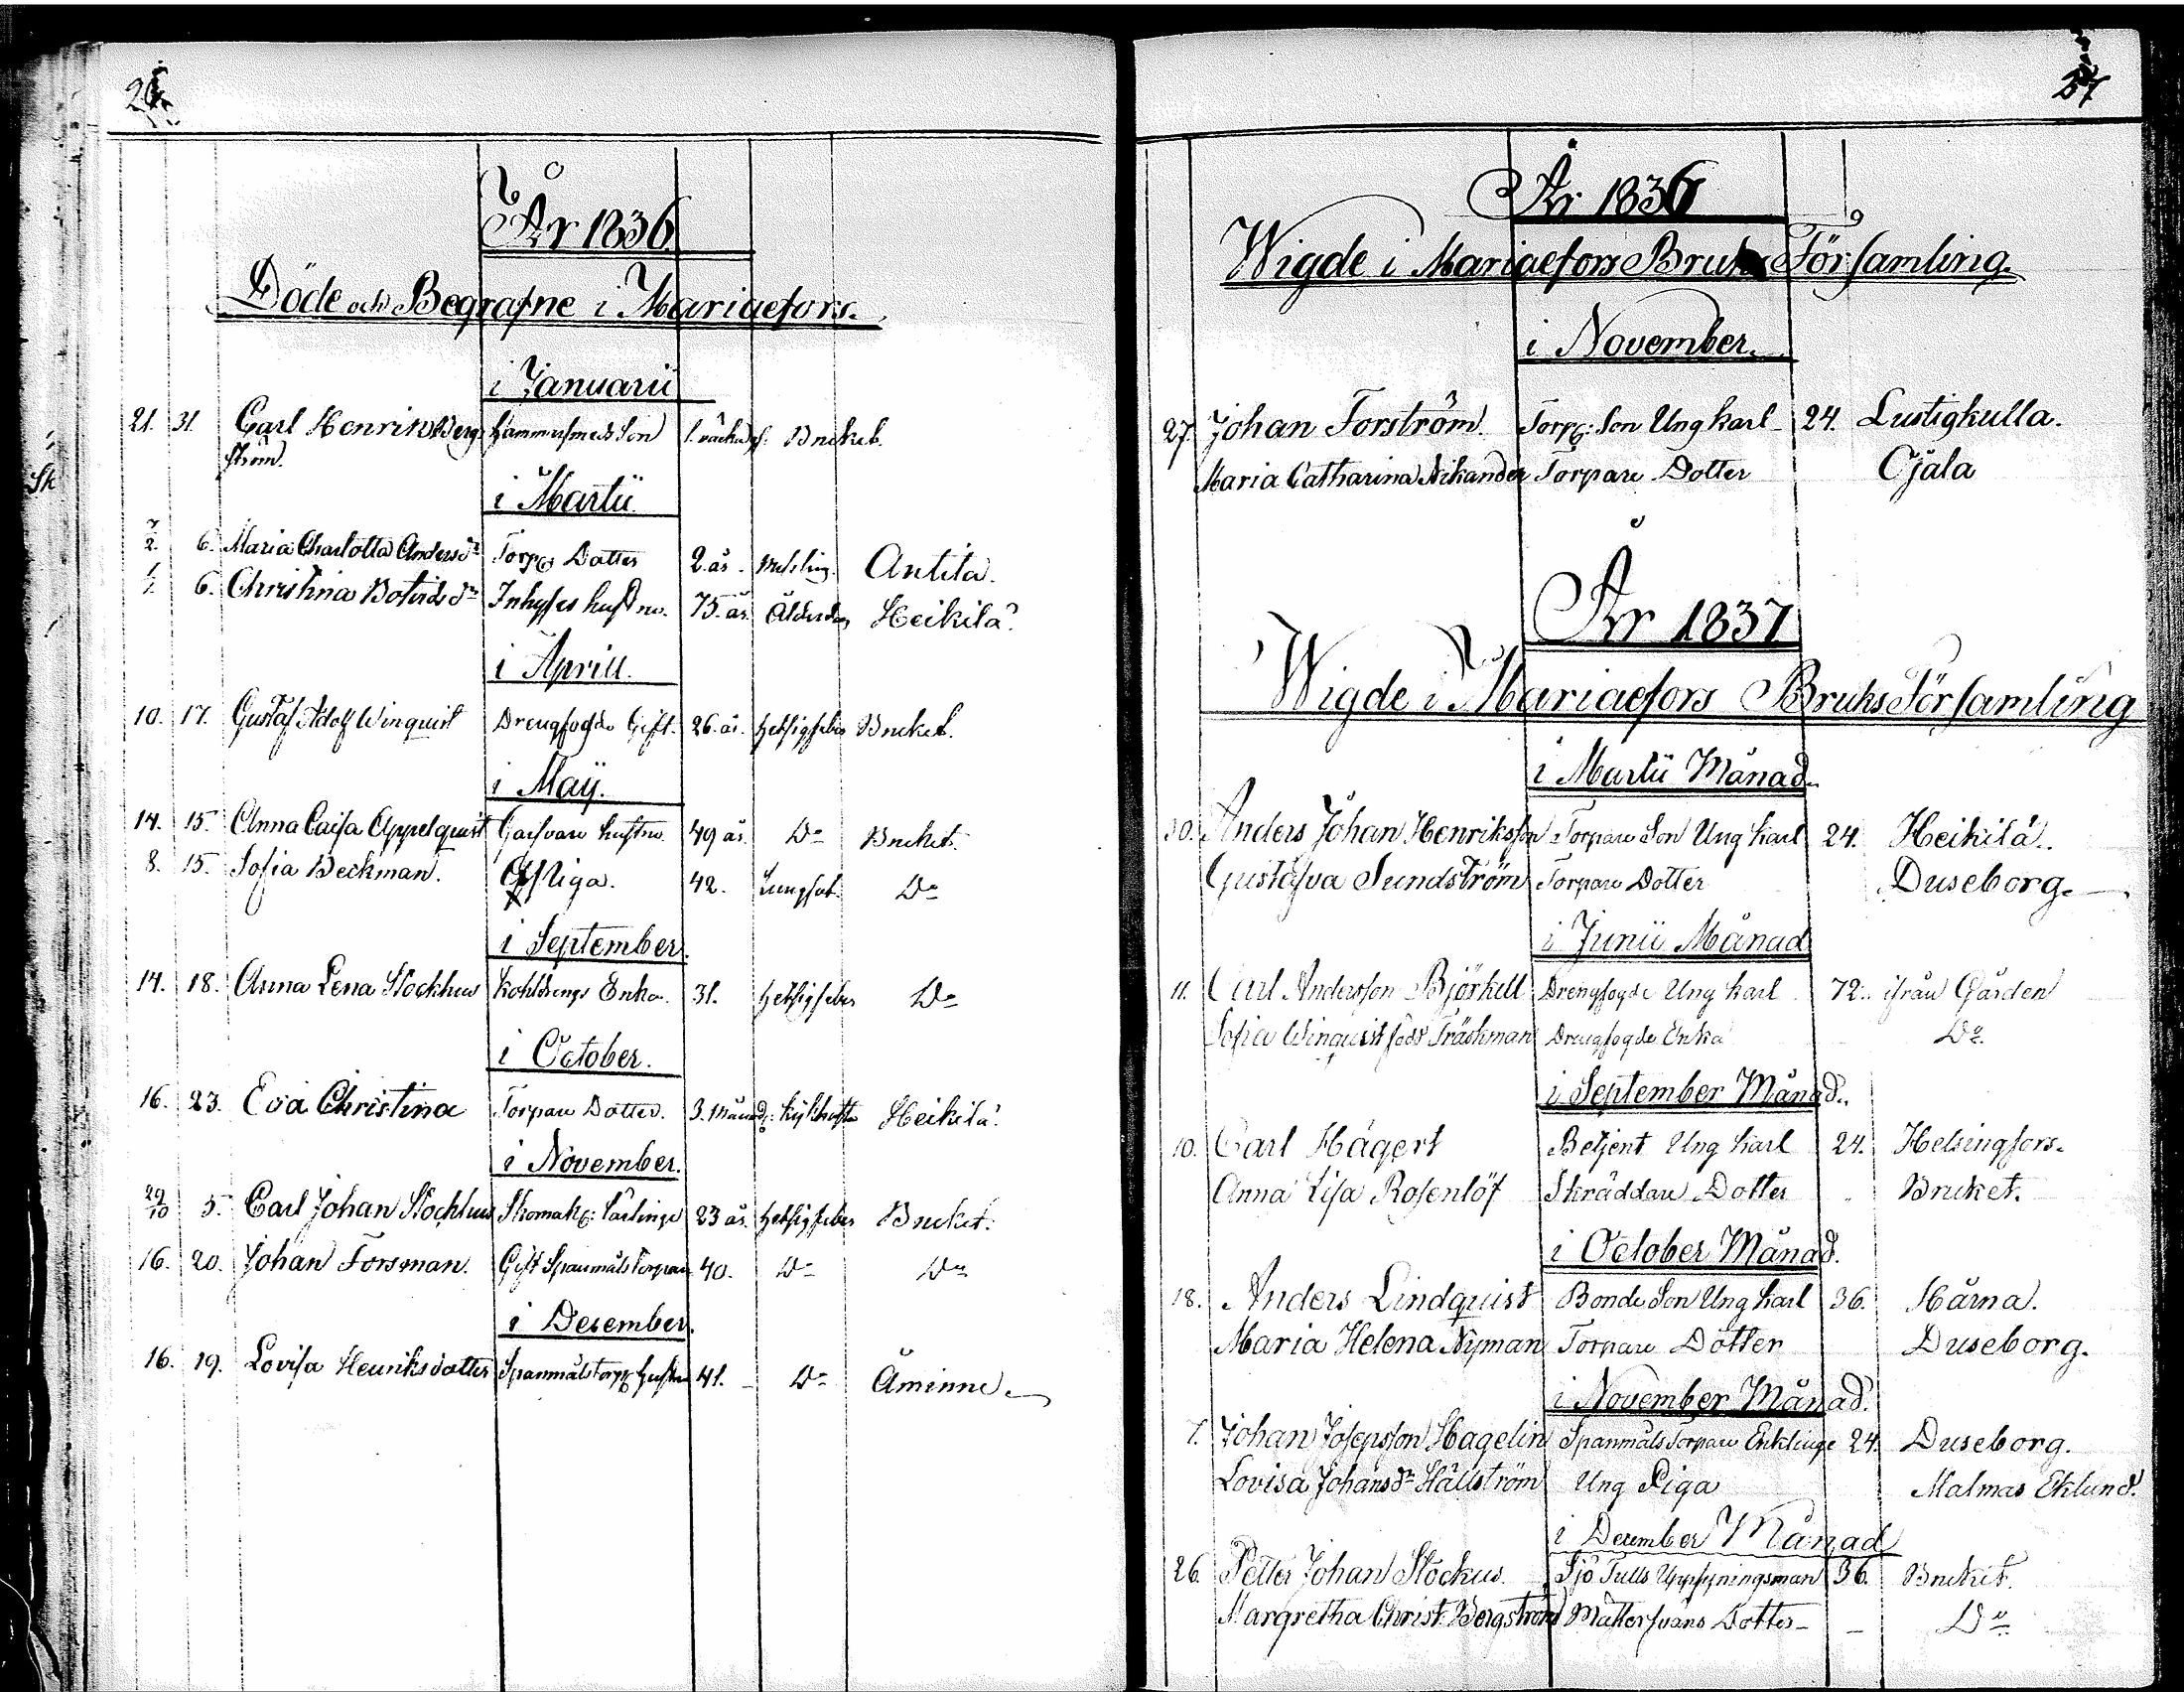 År 1836
Döde och Begrafne i Mariaefors.
i Januarii
21. 31. Carl Henrik Berg- Hammarsmeds Son 1. Bruket.
ström.
i Martii
6. Maria Charlotta Andersdr Torp: Dotter 2. år. Antila.
6. Christina Botvidsdr Inhyses hustru. 75. år. Ålderdom Heikilä.
i Aprill.
10. 17. Gustaf Adolf Winquist Drengfogde Gift. 26. år. Hetsigfeber Bruket.
i Maÿ.
14. 15. Anna Caisa Appelquist hustru. 49 år. Do Bruket.
8. 15. Sofia Beckman. Piga. 42. Lungsot. Do
i September.
14. 18. Anna Lena Stockhus Kohldrengs Enka. 31. Hetsigfeber Do
i October.
16. 23. Eva Christina Torpare Dotter. 3. Månad: Kikhosta Heikilä.
i November.
29/10 5. Carl Johan Stockhus Skomak: Lärlinge 23 år. Hetsigfeber Bruket.
16. 20. Johan Forsman. Gift Spanmåls Torpare 40. Do Do
i Desember.
16. 19. Lovisa Henriksdotter Spanmålstorp: Hustru 41. Do Åminne
27
År 1836
Wigde i Mariaefors Bruks Församling.
i November.
27. Johan Forström. Torp: Son Ung karl 24. Lustigkulla.
Maria Catharina Nikander Torpare Dotter Ojala
År 1837
Wigde i Mariaefors Bruks Församling
i Martii Månad.
30. Anders Johan Henriksson Torpare Son Ung karl 24. Heikilä.
Gustafva Sundström Torpare Dotter Duseborg.
i Junii Månad
11. Carl Andersson Björkell Drengfogde Ung karl 72. ifrån Gården
Sofia Winquist född Träskman Drengfogde Enka Do.
i September Månad.
10. Carl Hägert Betjent Ung karl 24. Helsingfors.
Anna Lisa Rosenlöf Skräddare Dotter Bruket.
i October Månad.
18. Anders Lindquist Bonde Son Ung karl 36. Härna.
Maria Helena Nyman Torpare Dotter Duseborg.
i November Månad.
7. Johan Josepsson Hagelin Spanmåls Torpare Enklinge 24. Duseborg.
Lovisa Johansdr Hällström Ung Piga Malmas Eklund.
i December Månad
26. Petter Johan Stockus. Sjö Tulls Uppsyningsman 36. Bruket.
Margretha Christ: Bergström Mästersvens Dotter Do